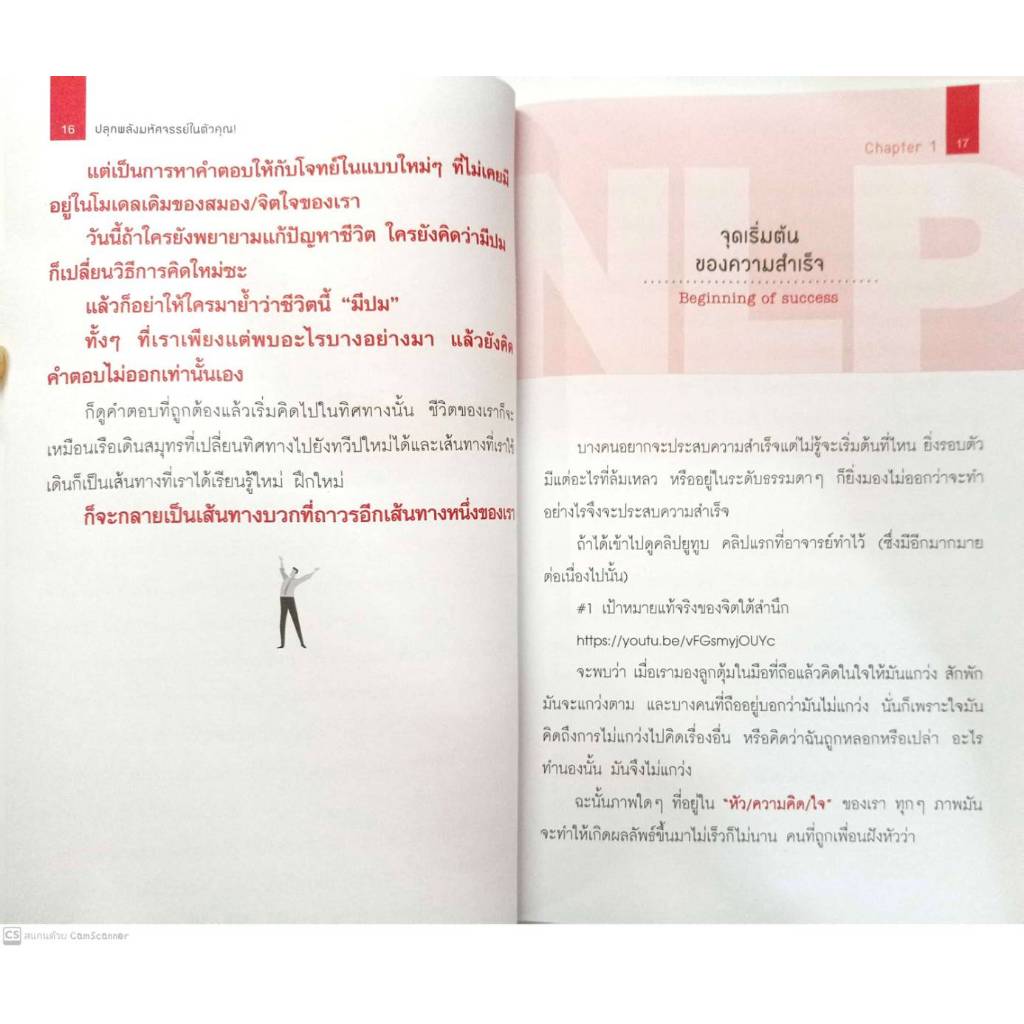 16 ปลุกพลังมหัศจรรย์ในตัวคุณ!
แต่เป็นการหาคำตอบให้กับโจทย์ในแบบใหม่ๆ ที่ไม่เคยมี
อยู่ในโมเดลเดิมของสมอง/จิตใจของเรา
วันนี้ถ้าใครยังพยายามแก้ปัญหาชีวิต ใครยังคิดว่ามีปม
ก็เปลี่ยนวิธีการคิดใหม่ซะ
แล้วก็อย่าให้ใครมาย้ำว่าชีวิตนี้ “มีปม”
ทั้งๆ ที่เราเพียงแต่พบอะไรบางอย่างมา แล้วยังคิด
คำตอบไม่ออกเท่านั้นเอง
ก็ดูคำตอบที่ถูกต้องแล้วเริ่มคิดไปในทิศทางนั้น ชีวิตของเราก็จะ
เหมือนเรือเดินสมุทรที่เปลี่ยนทิศทางไปยังทวีปใหม่ได้และเส้นทางที่เราใช้
เดินก็เป็นเส้นทางที่เราได้เรียนรู้ใหม่ ฝึกใหม่
ก็จะกลายเป็นเส้นทางบวกที่ถาวรอีกเส้นทางหนึ่งของเรา
Chapter 1 17
NLP
จุดเริ่มต้น
ของความสำเร็จ
Beginning of success
บางคนอยากจะประสบความสำเร็จแต่ไม่รู้จะเริ่มต้นที่ไหน ยิ่งรอบตัว
มีแต่อะไรที่ล้มเหลว หรืออยู่ในระดับธรรมดาๆ ก็ยิ่งมองไม่ออกว่าจะทำ
อย่างไรจึงจะประสบความสำเร็จ
ถ้าได้เข้าไปดูคลิปยูทูบ คลิปแรกที่อาจารย์ทำไว้ (ซึ่งมีอีกมากมาย
ต่อเนื่องไปนั้น)
#1 เป้าหมายแท้จริงของจิตใต้สำนึก
https://youtu.be/vFGsmyjOUYc
จะพบว่า เมื่อเรามองลูกตุ้มในมือที่ถือแล้วคิดในใจให้มันแกว่ง สักพัก
มันจะแกว่งตาม และบางคนที่ถืออยู่บอกว่ามันไม่แกว่ง นั่นก็เพราะใจมัน
คิดถึงการไม่แกว่งไปคิดเรื่องอื่น หรือคิดว่าฉันถูกหลอกหรือเปล่า อะไร
ทำนองนั้น มันจึงไม่แกว่ง
ฉะนั้นภาพใดๆ ที่อยู่ใน “หัว/ความคิด/ใจ” ของเรา ทุกๆ ภาพมัน
จะทำให้เกิดผลลัพธ์ขึ้นมาไม่เร็วก็ไม่นาน คนที่ถูกเพื่อนฝังหัวว่า
CS สแกนด้วย CamScanner